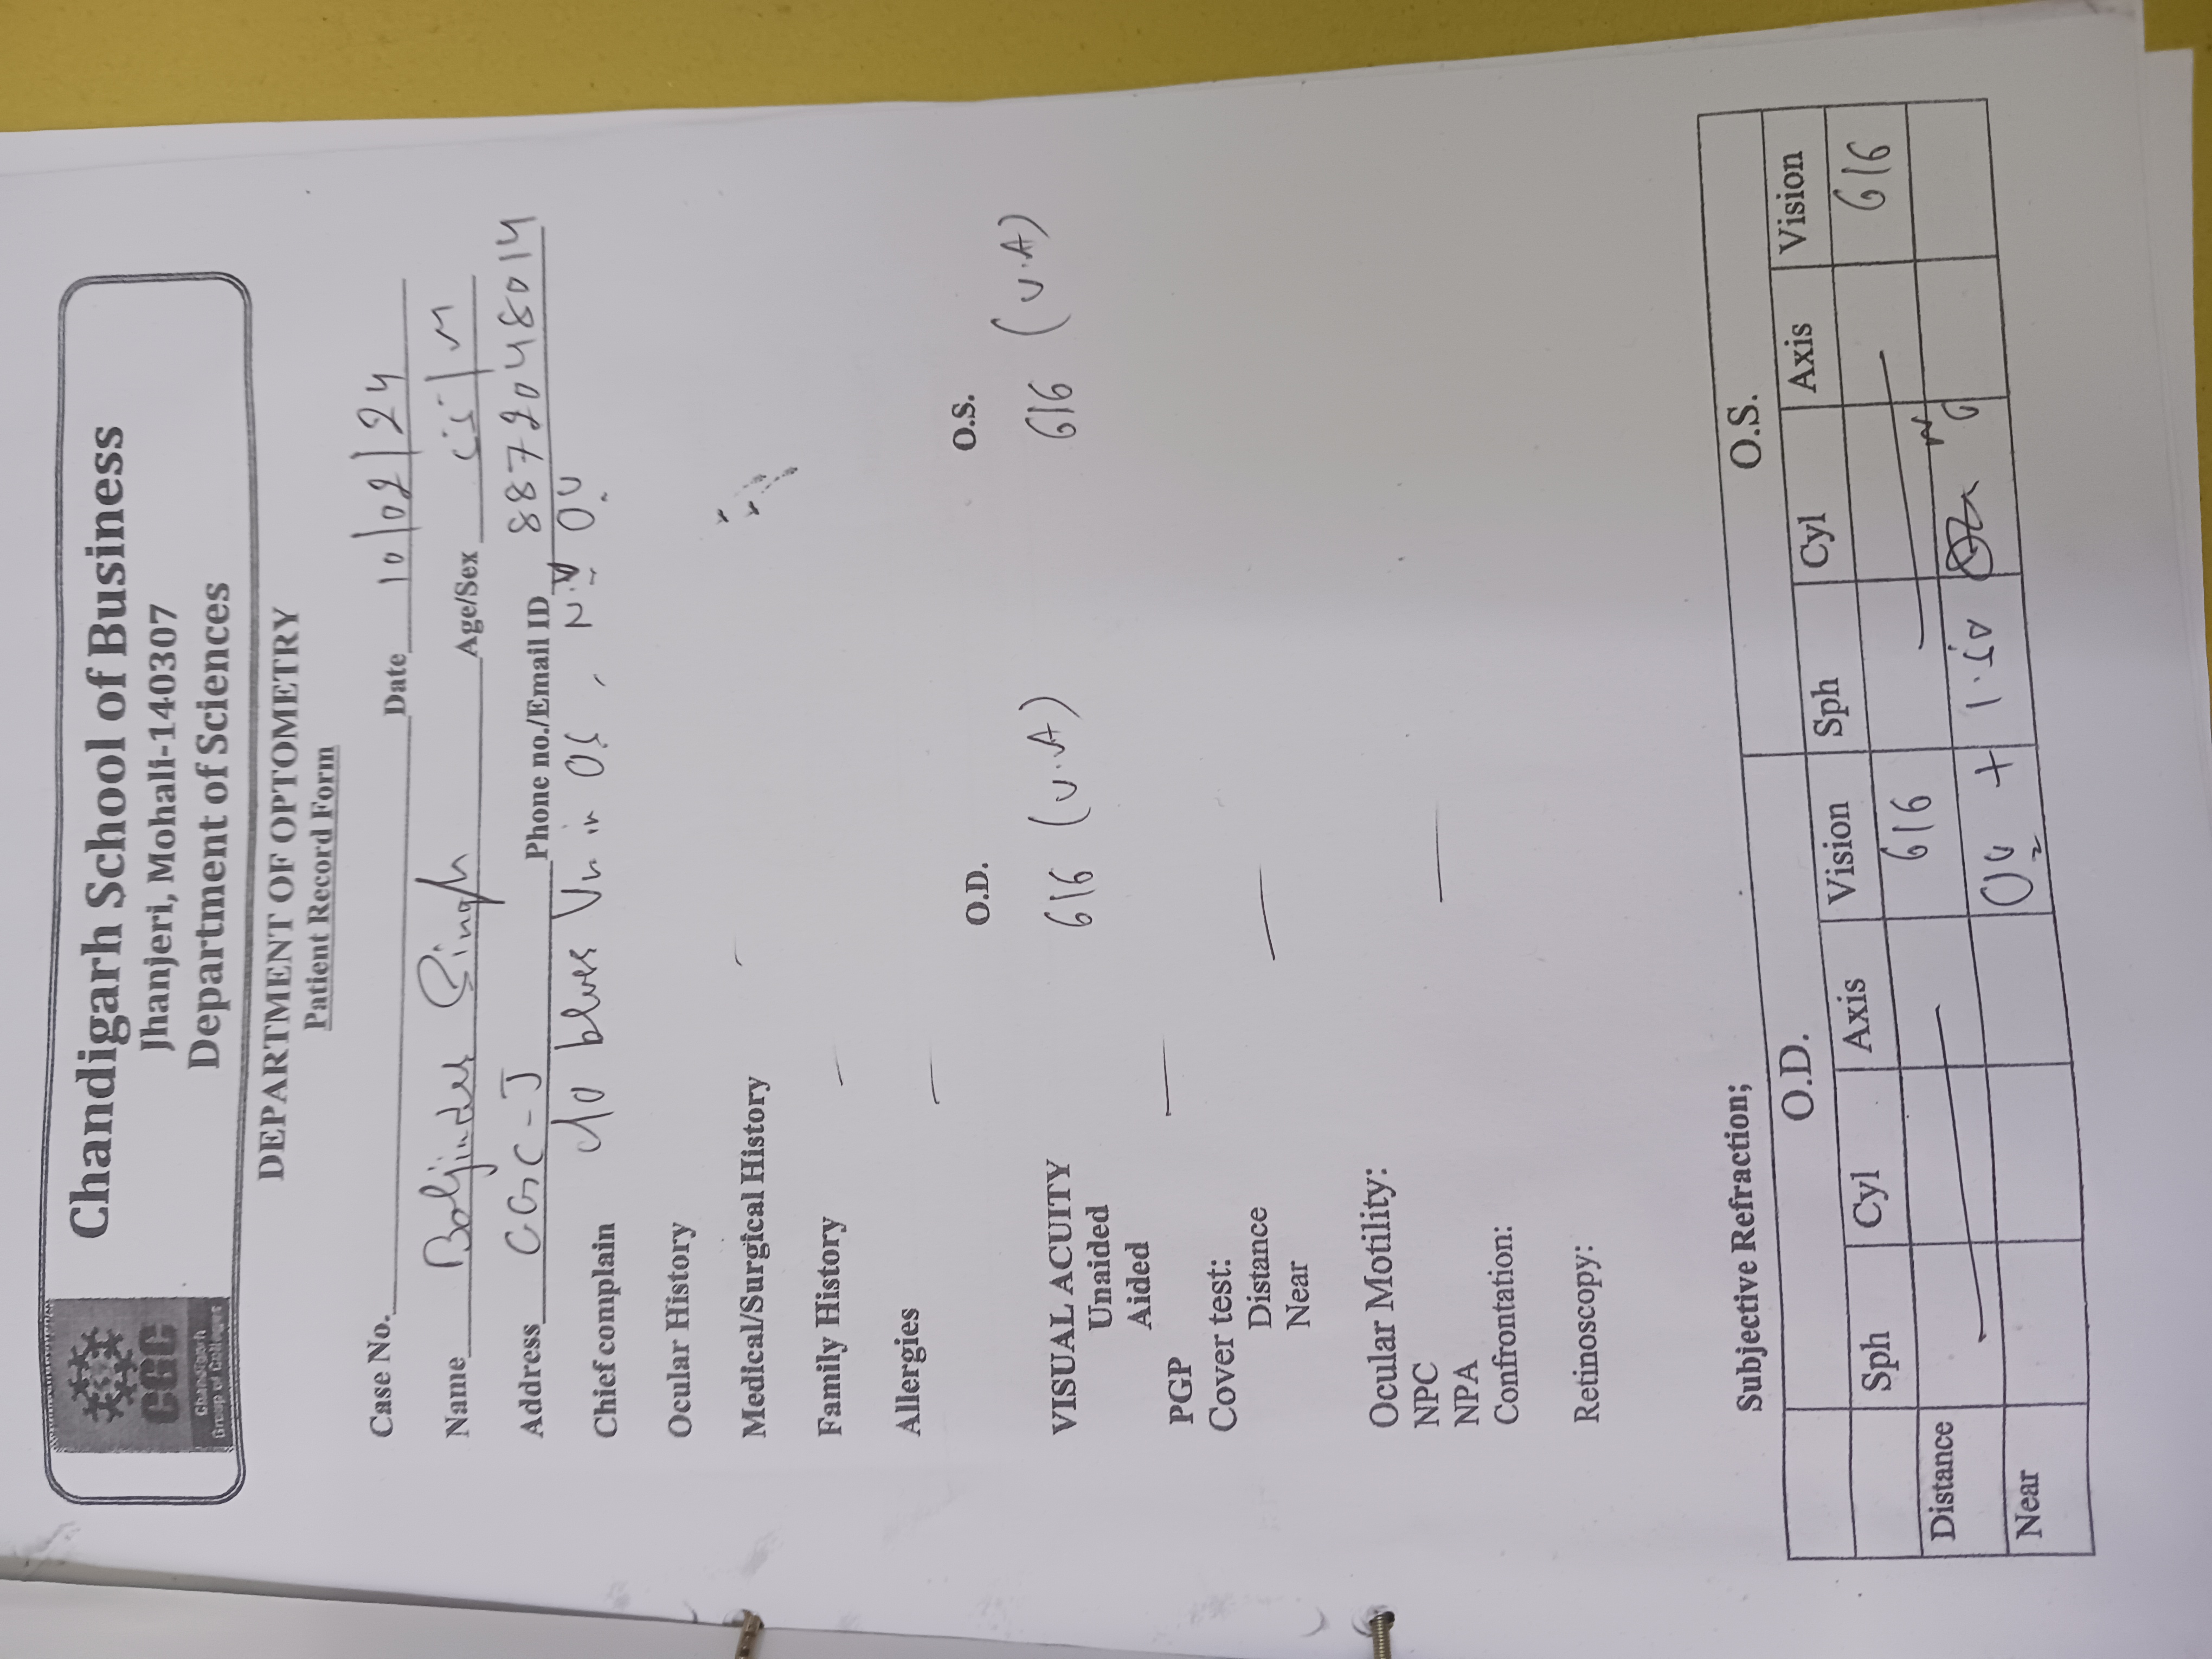 CGC
Chandigarh
Group of Colleges
Chandigarh School of Business
Jhanjeri, Mohali-140307
Department of Sciences
DEPARTMENT OF OPTOMETRY
Patient Record Form
Case No. Date 10/02/24
Name Baljinder Singh Age/Sex /M
Address CGC-J Phone no./Email ID 8872048014
Chief complain c/o in OS, OU
Ocular History
Medical/Surgical History —
Family History —
Allergies —
O.D. O.S.
VISUAL ACUITY 6/6 (V.A) 6/6 (V.A)
Unaided
Aided
PGP —
Cover test:
Distance —
Near
Ocular Motility:
NPC —
NPA
Confrontation:
Retinoscopy:
Subjective Refraction;
O.D. O.S.
Sph Cyl Axis Vision Sph Cyl Axis Vision
Distance — 6/6 — 6/6
Near OU + 1.50 N6